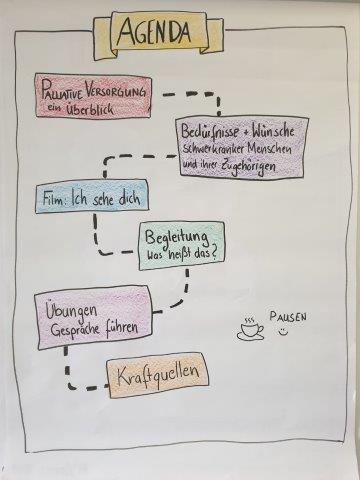 AGENDA
PALLIATIVE VERSORGUNG
ein Überblick
Bedürfnisse + Wünsche
schwerkranker Menschen
und ihrer Zugehörigen
Film: Ich sehe dich
Begleitung
Was heißt das?
Übungen
Gespräche führen
PAUSEN
Kraftquellen